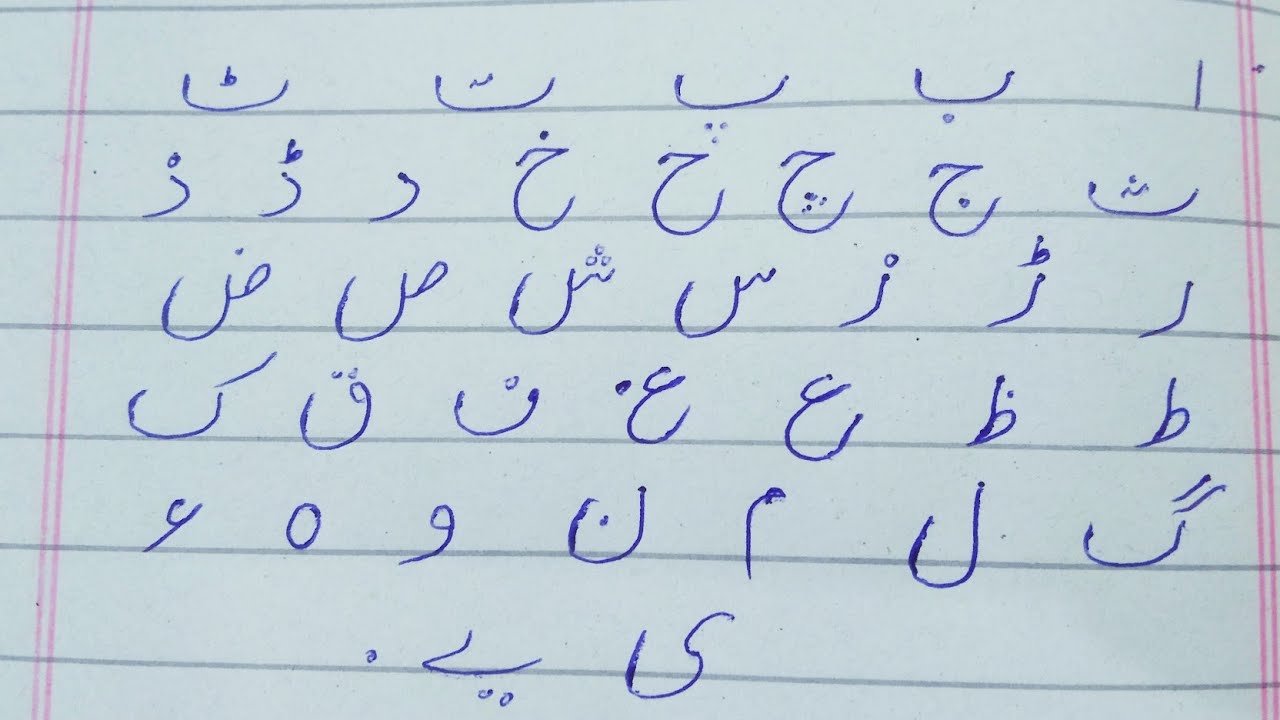 ا ب پ ت ٹ
ث ج چ ح خ د ڈ ذ
ر ڑ ز س ش ص ض
ط ظ ع غ ف ق ک
گ ل م ن و ہ ء
ی ے